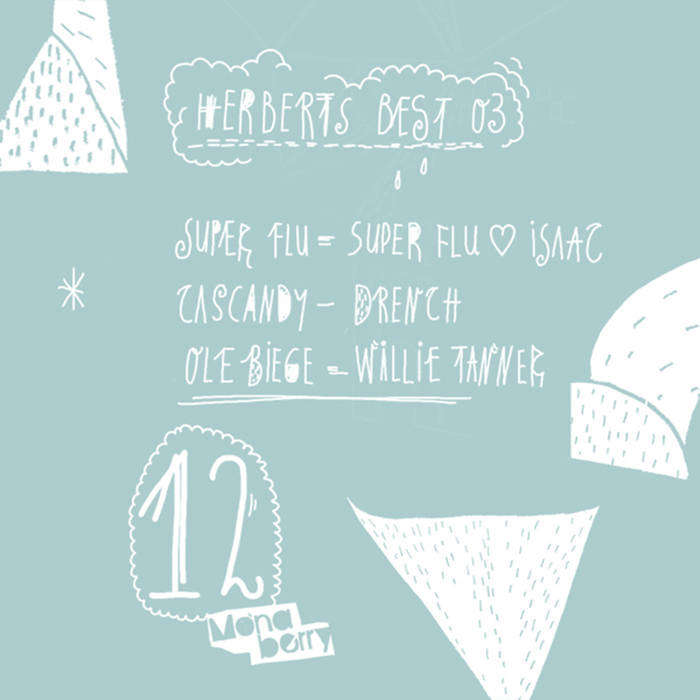 HERBERTS BEST 03
SUPER FLU = SUPER FLU ♡ ISAAC
CASCANDY - DRENCH
OLE BIEGE = WILLIE TANNER
12
Mona
berry